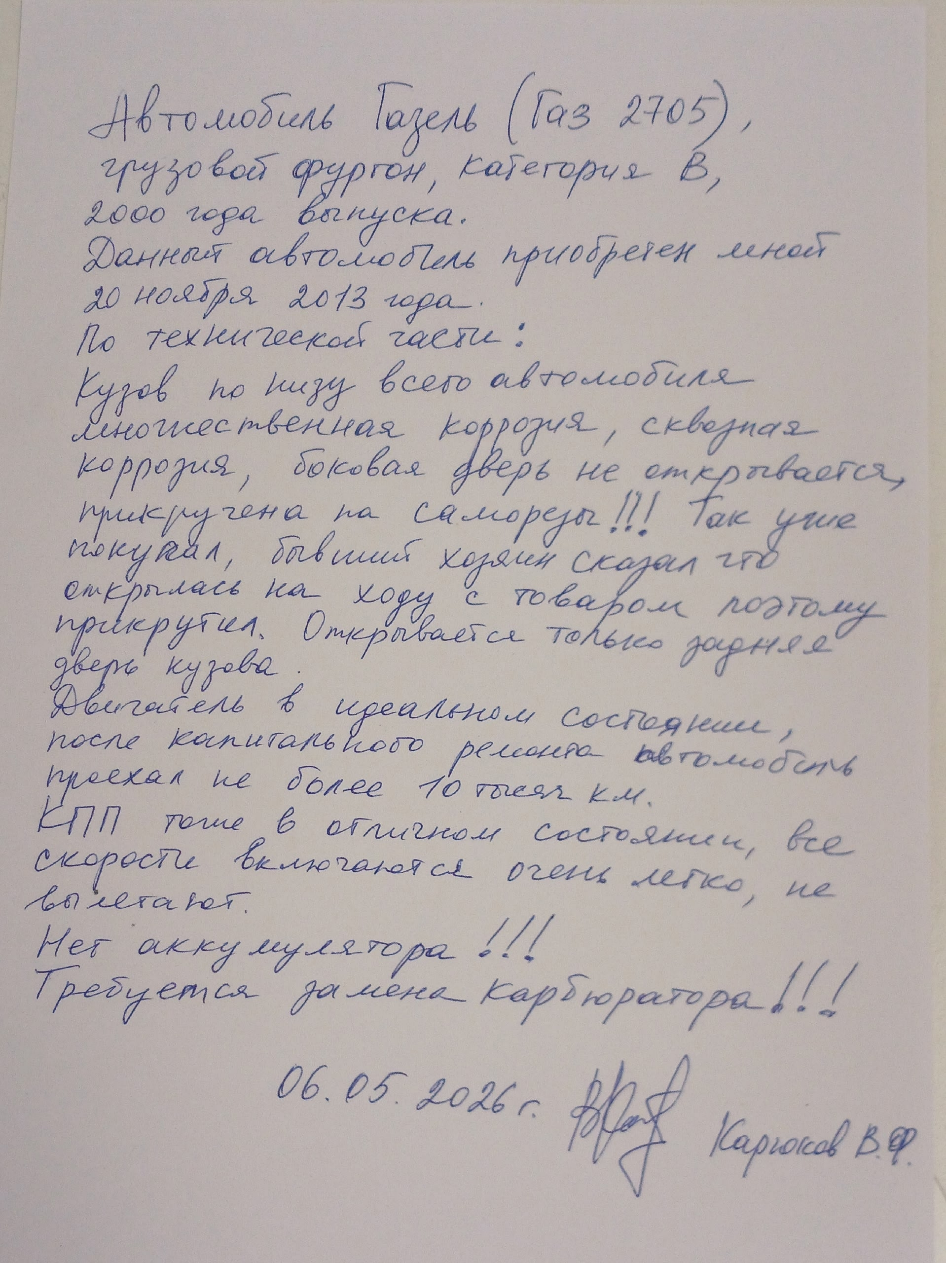 Автомобиль Газель (Газ 2705),
грузовой фургон, категория В,
2000 года выпуска.
Данный автомобиль приобретен мной
20 ноября 2013 года.
По технической части:
Кузов по низу всего автомобиля
множественная коррозия, сквозная
коррозия, боковая дверь не открывается,
прикручена на саморезы!!! Так уже
покупал, бывший хозяин сказал что
открылась на ходу с товаром поэтому
прикрутил. Открывается только задняя
дверь кузова.
Двигатель в идеальном состоянии,
после капитального ремонта автомобиль
проехал не более 10 тысяч км.
КПП тоже в отличном состоянии, все
скорости включаются очень легко, не
вылетают.
Нет аккумулятора!!!
Требуется замена карбюратора!!!
06.05.2026 г.
Карюков В.Ф.